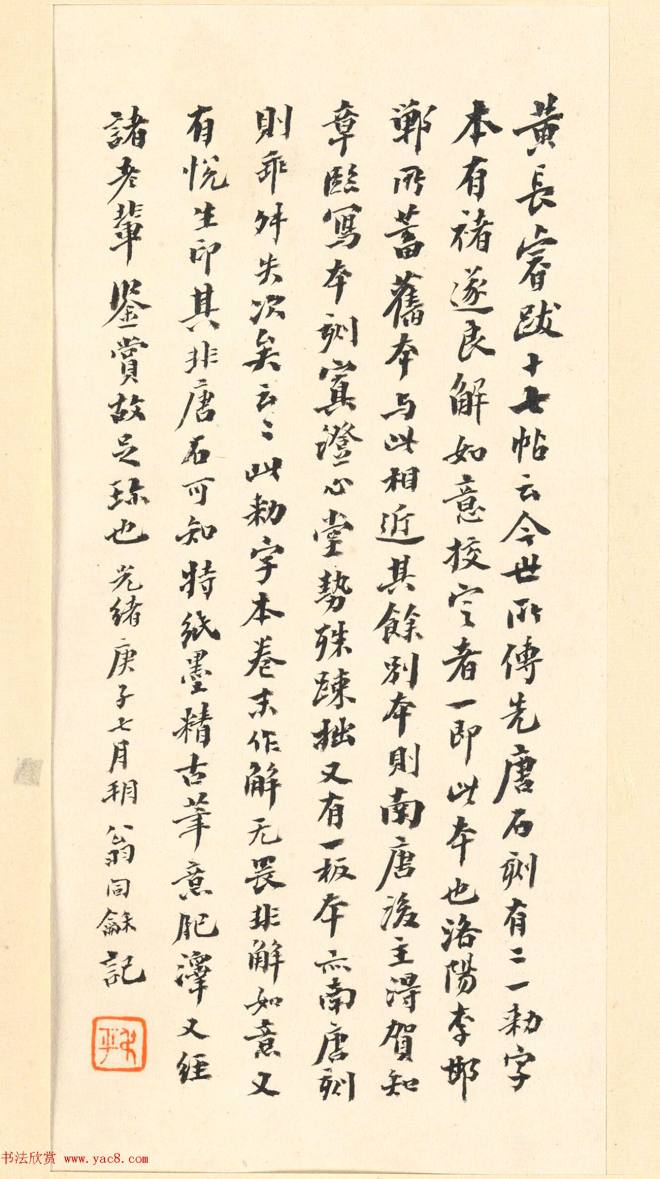 黃長睿跋十七帖云今世所傳先唐石刻有二一勑字
本有褚遂良解如意挍定者一即此本也洛陽李邯
鄲所蓄舊本与此相近其餘別本則南唐後主得賀知
章臨寫本刻寘澄心堂勢殊踈拙又有一板本亦南唐刻
則乖舛失次矣云〻此勑字本卷末作解无畏非解如意又
有悅生印其非唐石可知特紙墨精古筆意肥澤又經
諸老輩鑒賞故足珎也 光緒庚子七月朔 翁同龢記
书法欣赏 www.yac8.com